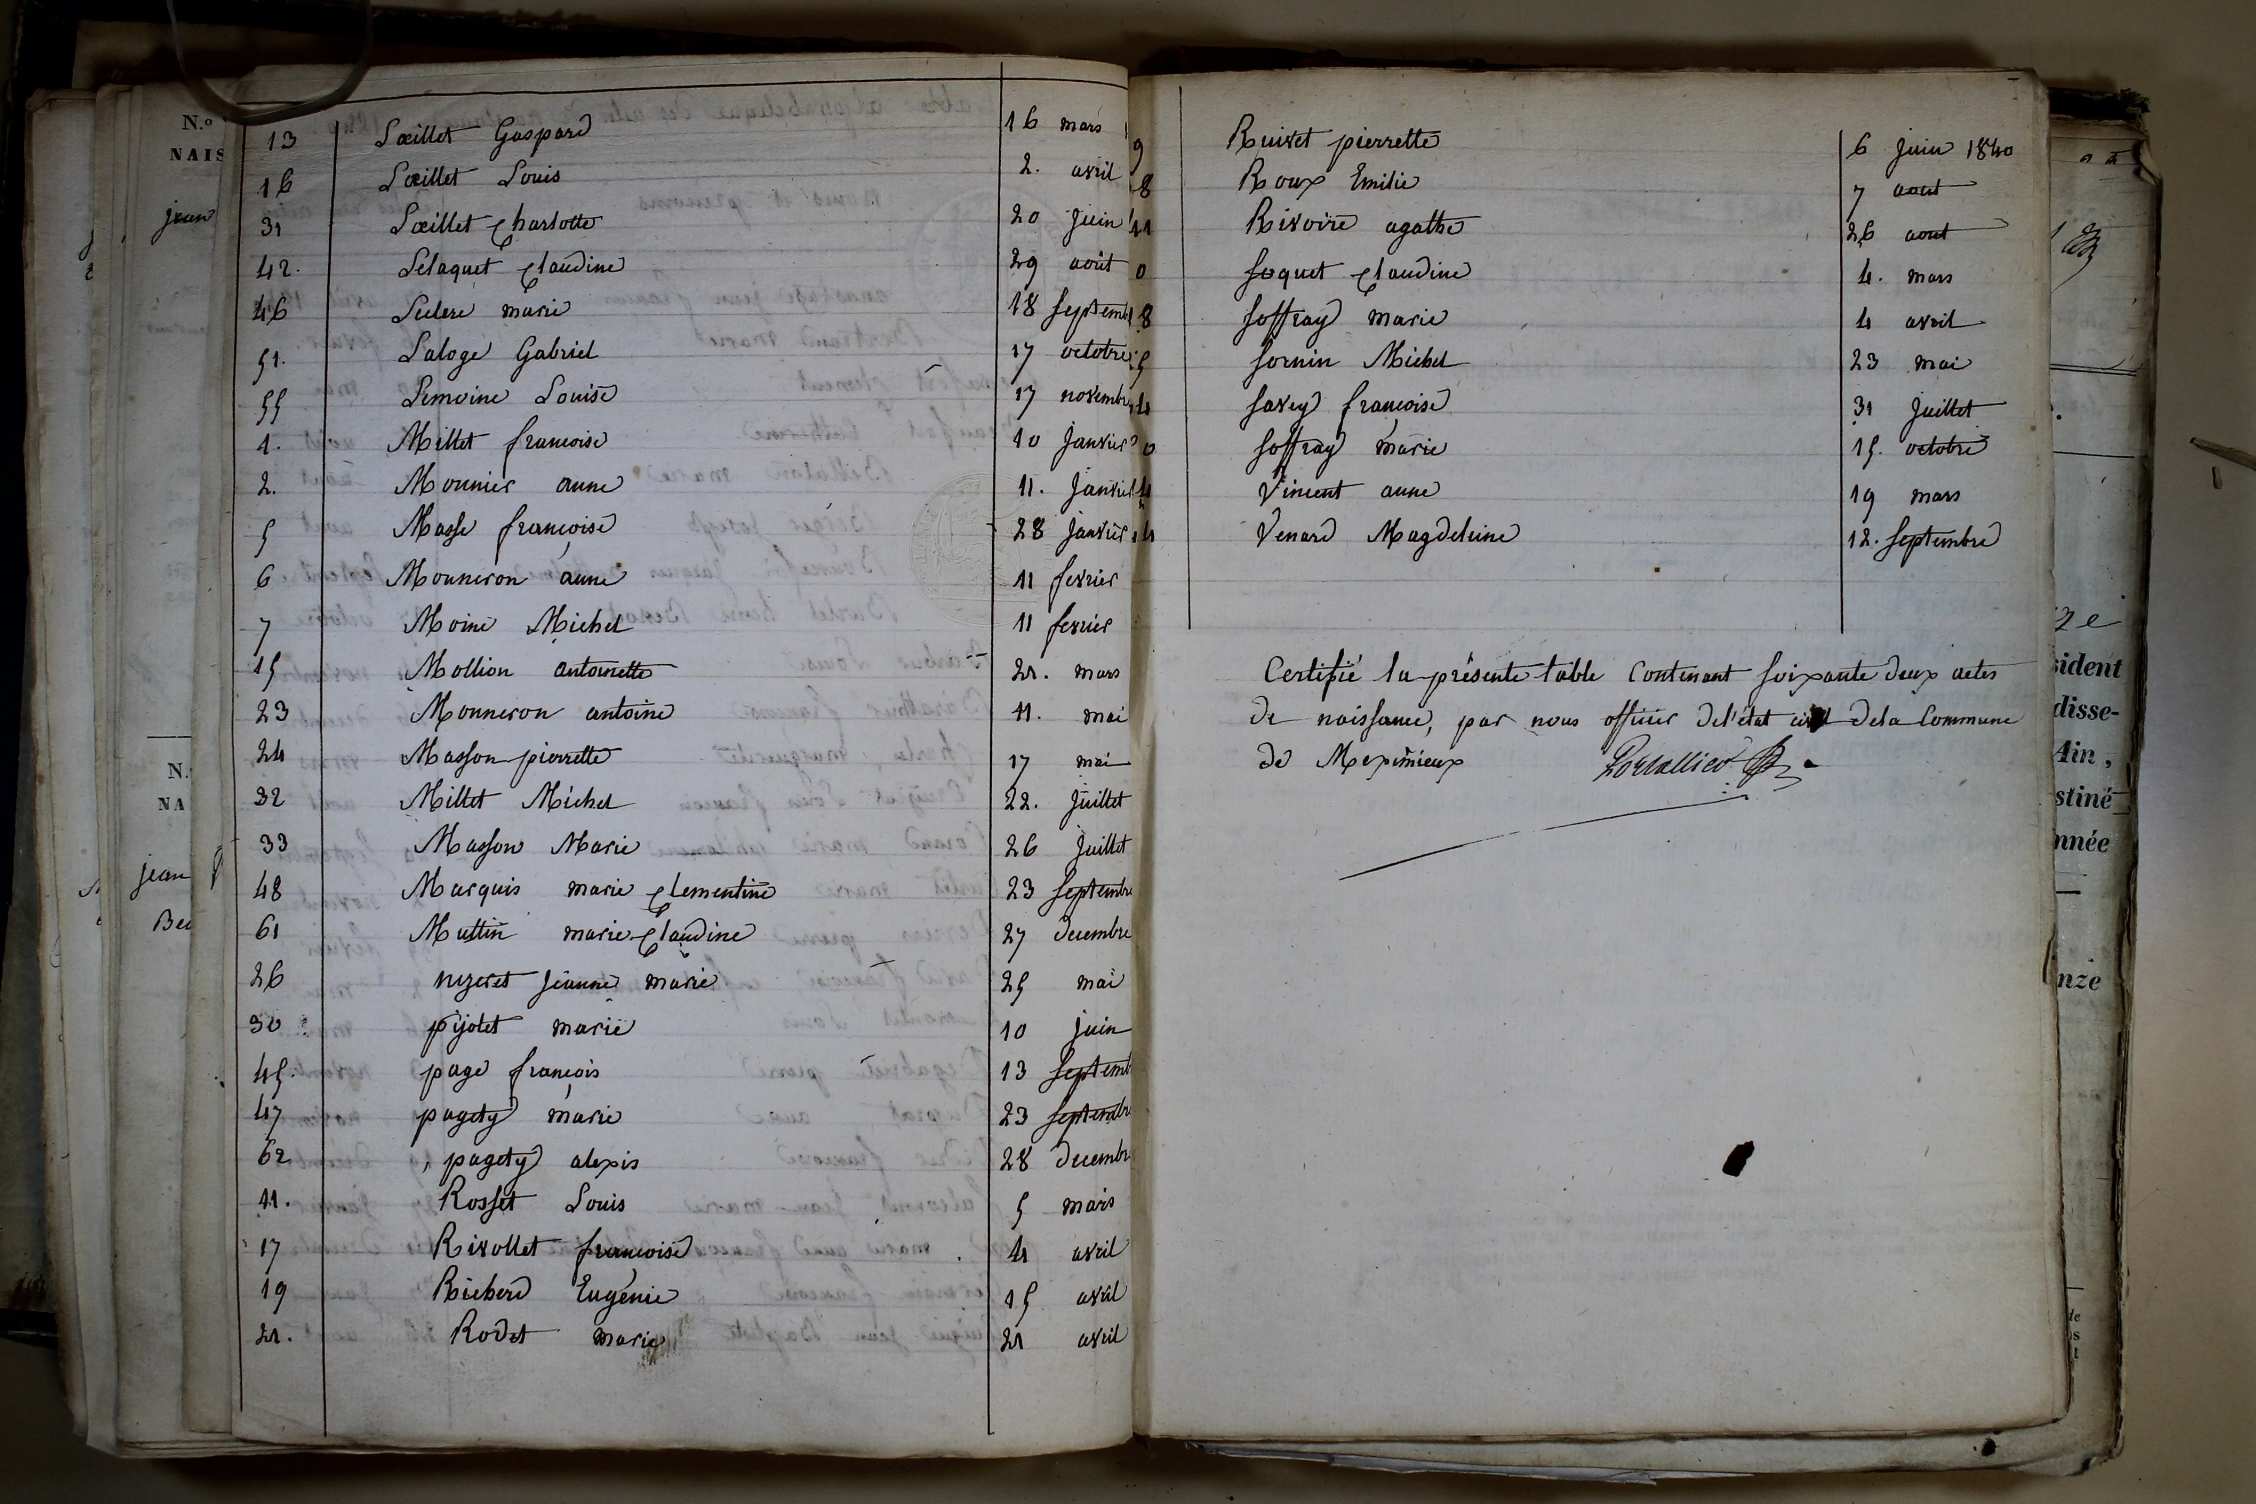 13 Lœillet Gaspard 16 mars
16 Lœillet Louis 2. avril
31 Lœillet Charlotte 20 Juin
42. Lelaquet Claudine 29 août
46 Leclere marie 18 Septemb
51. Laloge Gabriel 17 octobre
55 Lemoine Louise 17 novembr
1. Millet francoise 10 Janvier
2. Mounier anne 11. Janvier
5 Masse françoise 28 Janvier
6 Mouneron anne 11 fevrier
7 Moine Michel 11 fevrier
15 Mollion antoinette 21. mars
23 Mouneron antoine 11. mai
24 Masson pierrette 17 mai
32 Millet Michel 22. Juillet
33 Masson Marie 26 Juillet
48 Marquis marie Clementine 23 Septembre
61 Muttin marie Claudine 27 decembre
26 nyzeret Jeanne marie 25 mai
30 pijolet marie 10 Juin
45. page françois 13 Septemb
47 pagety marie 23 Septembr
62 pagety alexis 28 decembr
11. Rosset Louis 5 mars
17 Rivollet françoise 4 avril
19 Richerd Eugénie 15 avril
21. Rodet marie 21 avril
Ruivet pierrette 6 Juin 1840
Roux Emilie 7 aout
Rivoire agathe 26 aout
Soquet Claudine 4. mars
Soffray marie 4 avril
Sornin Michel 23 mai
Savey françoise 31 Juillet
Soffray marie 15. octobre
Vincent anne 19 mars
Venard Magdeleine 12. Septembre
Certifié la présente table Contenant Soixante deux actes
de naissance, par nous officier de l'état civil dela Commune
de Meximieux Portallier
N.º
NAIS
jean
N.
NA
jean
Bea
sident
disse-
Ain,
stiné
nnée
nze